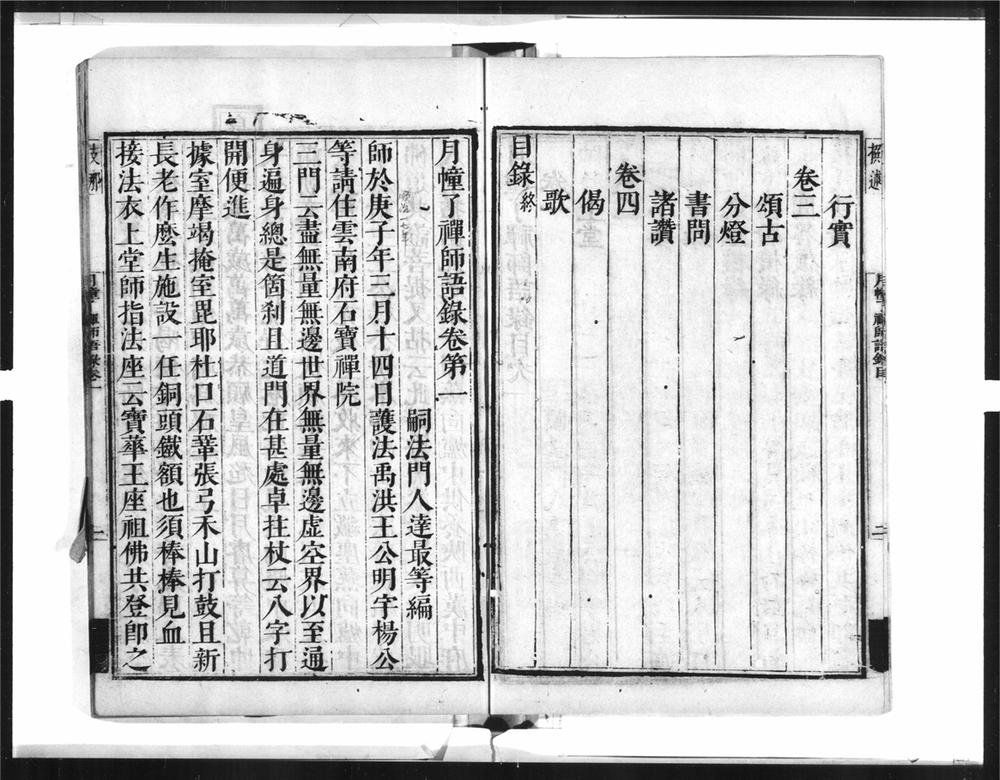 行實
卷三
頌古
分燈
書問
諸讚
卷四
偈
歌
目錄終
月幢了禪師語錄卷第一
嗣法門人達最等編
師於庚子年三月十四日護法禹洪王公明宇楊公
等請住雲南府石寶禪院
三門云盡無量無邊世界無量無邊虛空界以至通
身遍身總是箇刹且道門在甚處卓拄杖云八字打
開便進
據室摩竭掩室毘耶杜口石鞏張弓禾山打鼓且新
長老作麼生施設一任銅頭鐵額也須棒棒見血
接法衣上堂師指法座云寶華王座祖佛共登卽之